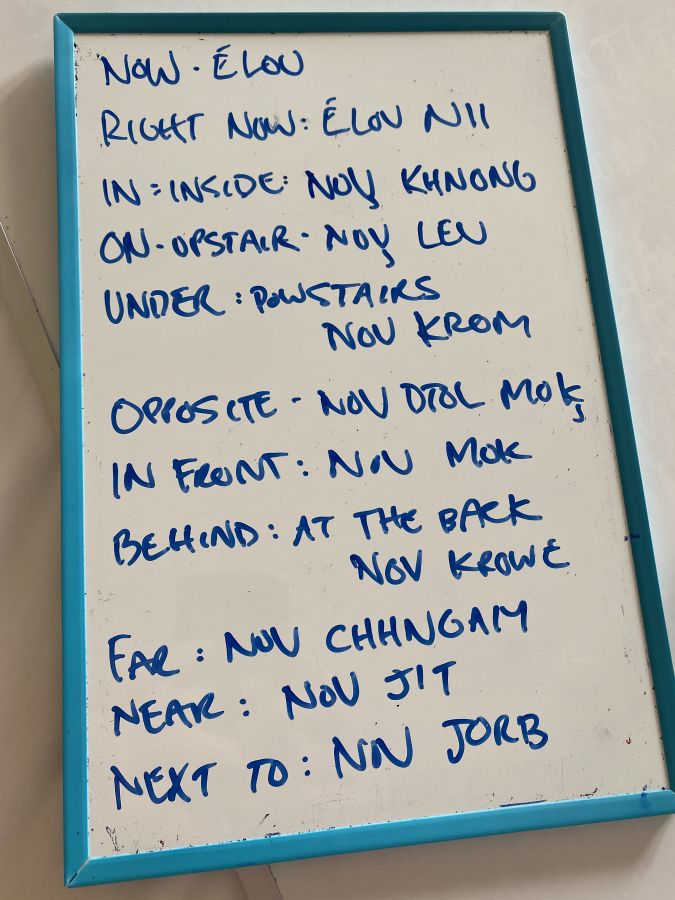 NOW · ÉLOU
RIGHT NOW: ÉLOU NII
IN : INSIDE: NOV KHNONG
ON · OPSTAIR · NOV LEU
UNDER : DOWSTAIRS
NOV KROM
OPPOSITE - NOV DTOL MOK
IN FRONT : NOV MOK
BEHIND : AT THE BACK
NOV KROWE
FAR : NOV CHHNGAIY
NEAR : NOV JIT
NEXT TO : NOV JORB